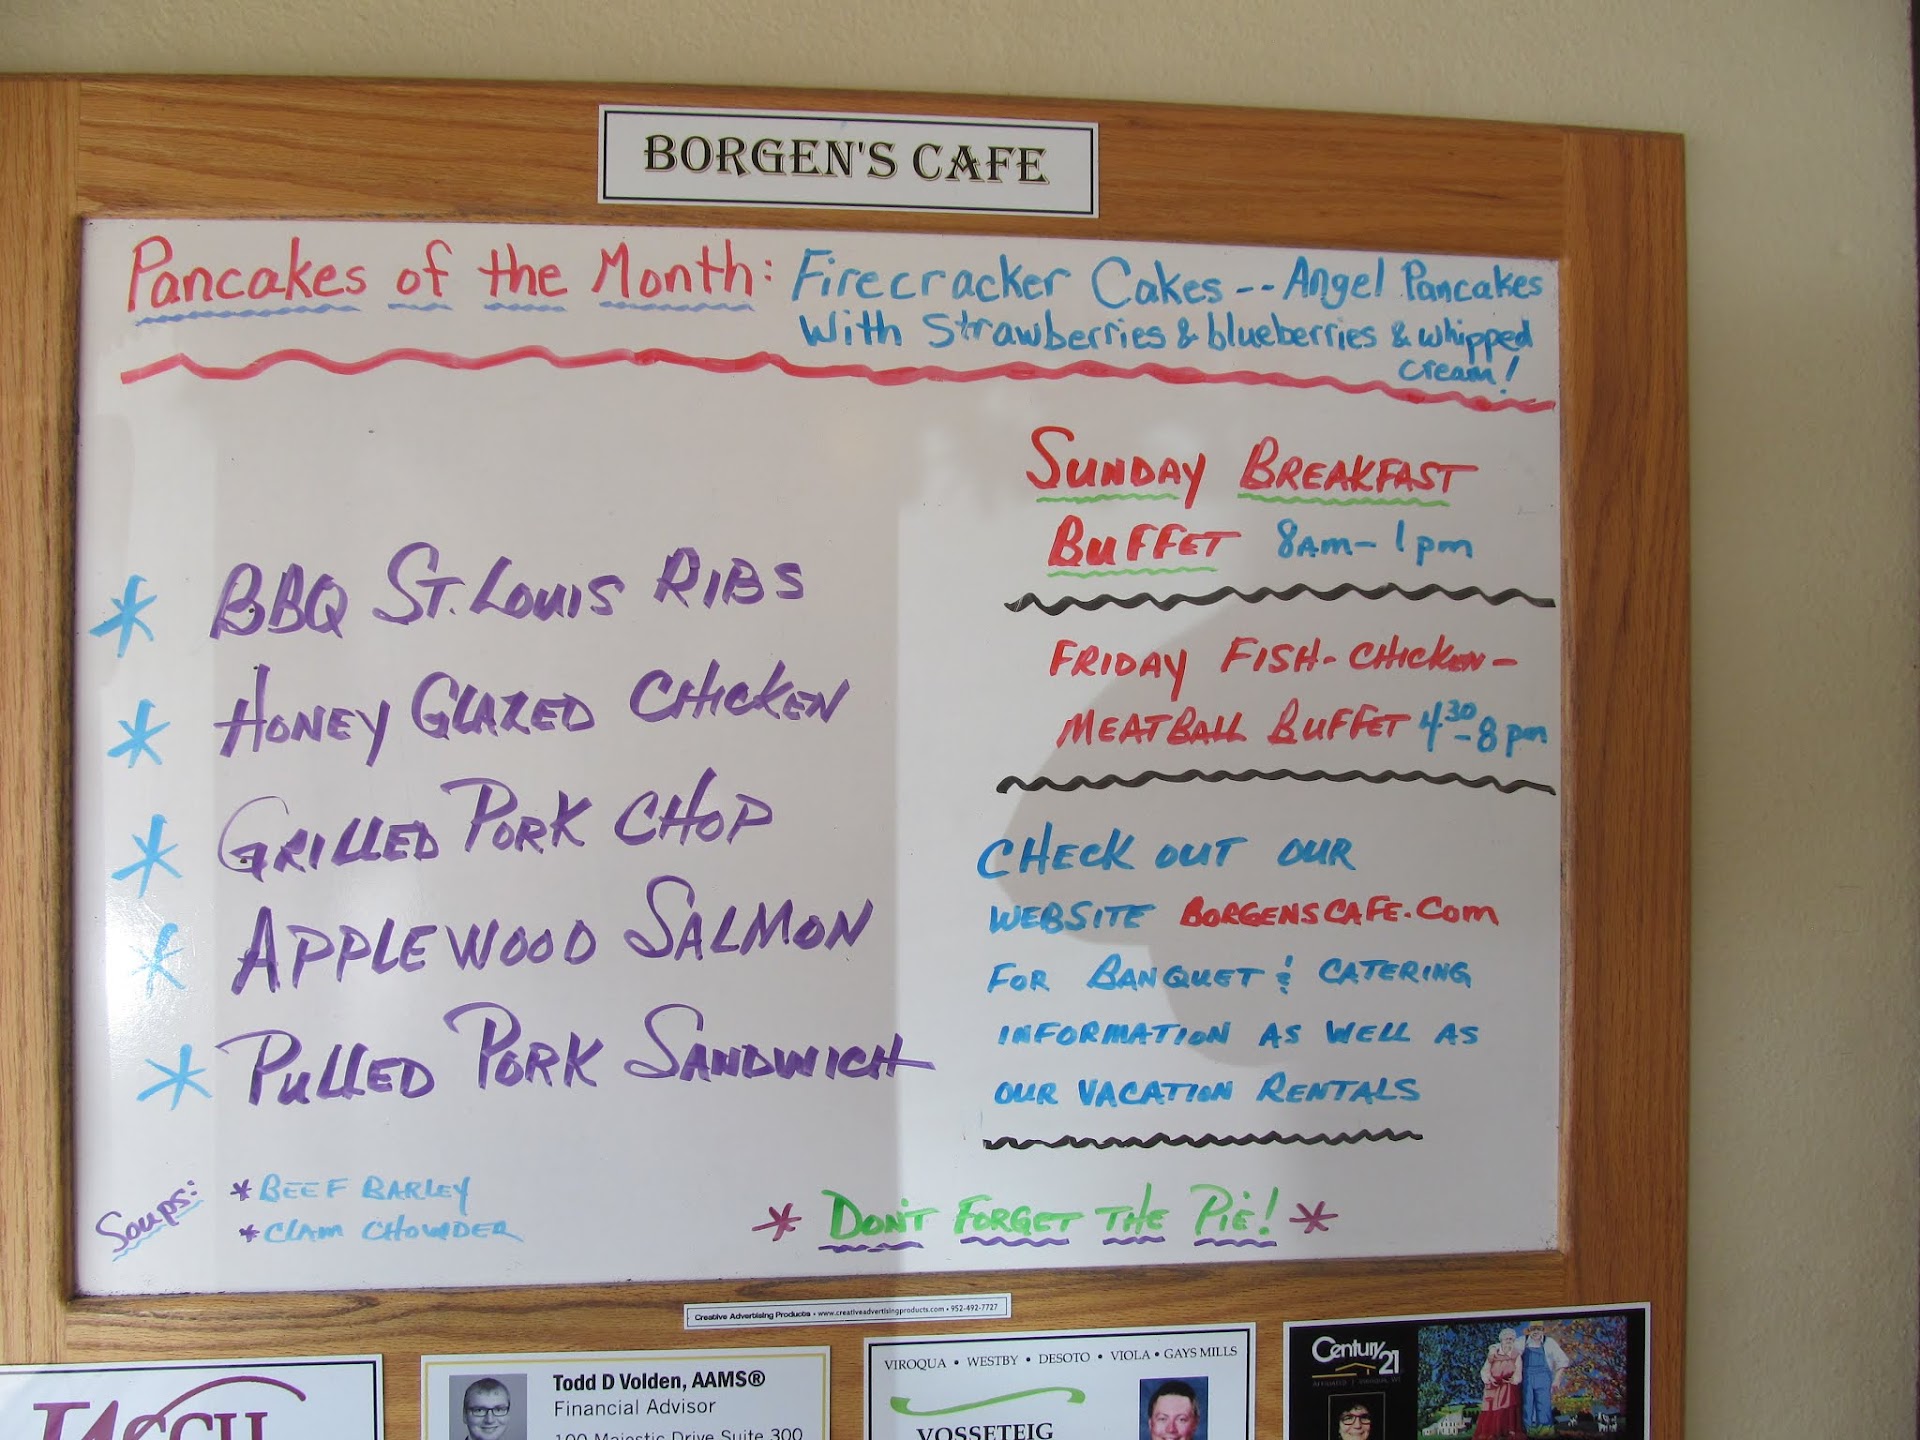 BORGEN'S CAFE
Pancakes of the Month: Firecracker Cakes -- Angel Pancakes
With Strawberries & blueberries & whipped
cream!
* BBQ ST. LOUIS RIBS
* HONEY GLAZED CHICKEN
* GRILLED PORK CHOP
* APPLEWOOD SALMON
* PULLED PORK SANDWICH
Soups: * BEEF BARLEY
* CLAM CHOWDER
SUNDAY BREAKFAST
BUFFET 8AM - 1pm
FRIDAY FISH - CHICKEN -
MEATBALL BUFFET 4 30 - 8 pm
CHECK OUT OUR
WEBSITE BORGENSCAFE.COM
FOR BANQUET & CATERING
INFORMATION AS WELL AS
OUR VACATION RENTALS
* DON'T FORGET THE PIE! *
Creative Advertising Products • www.creativeadvertisingproducts.com • 952-492-7727
Todd D Volden, AAMS®
Financial Advisor
100 Majestic Drive Suite 300
VIROQUA • WESTBY • DESOTO • VIOLA • GAYS MILLS
VOSSETEIG
Century 21